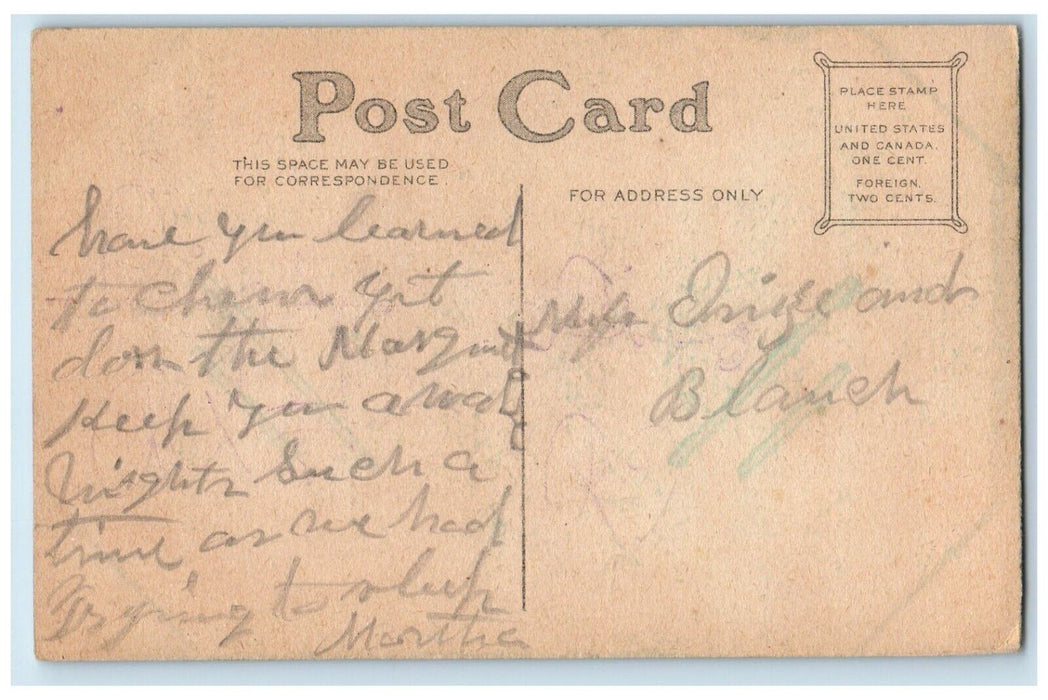 Post Card
THIS SPACE MAY BE USED
FOR CORRESPONDENCE.
FOR ADDRESS ONLY
PLACE STAMP
HERE
UNITED STATES
AND CANADA.
ONE CENT.
FOREIGN.
TWO CENTS.
have you learned
to chew yet
don the
Keep you awake
nights Such a
time as we had
trying to sleep
Martha
and
Blanch